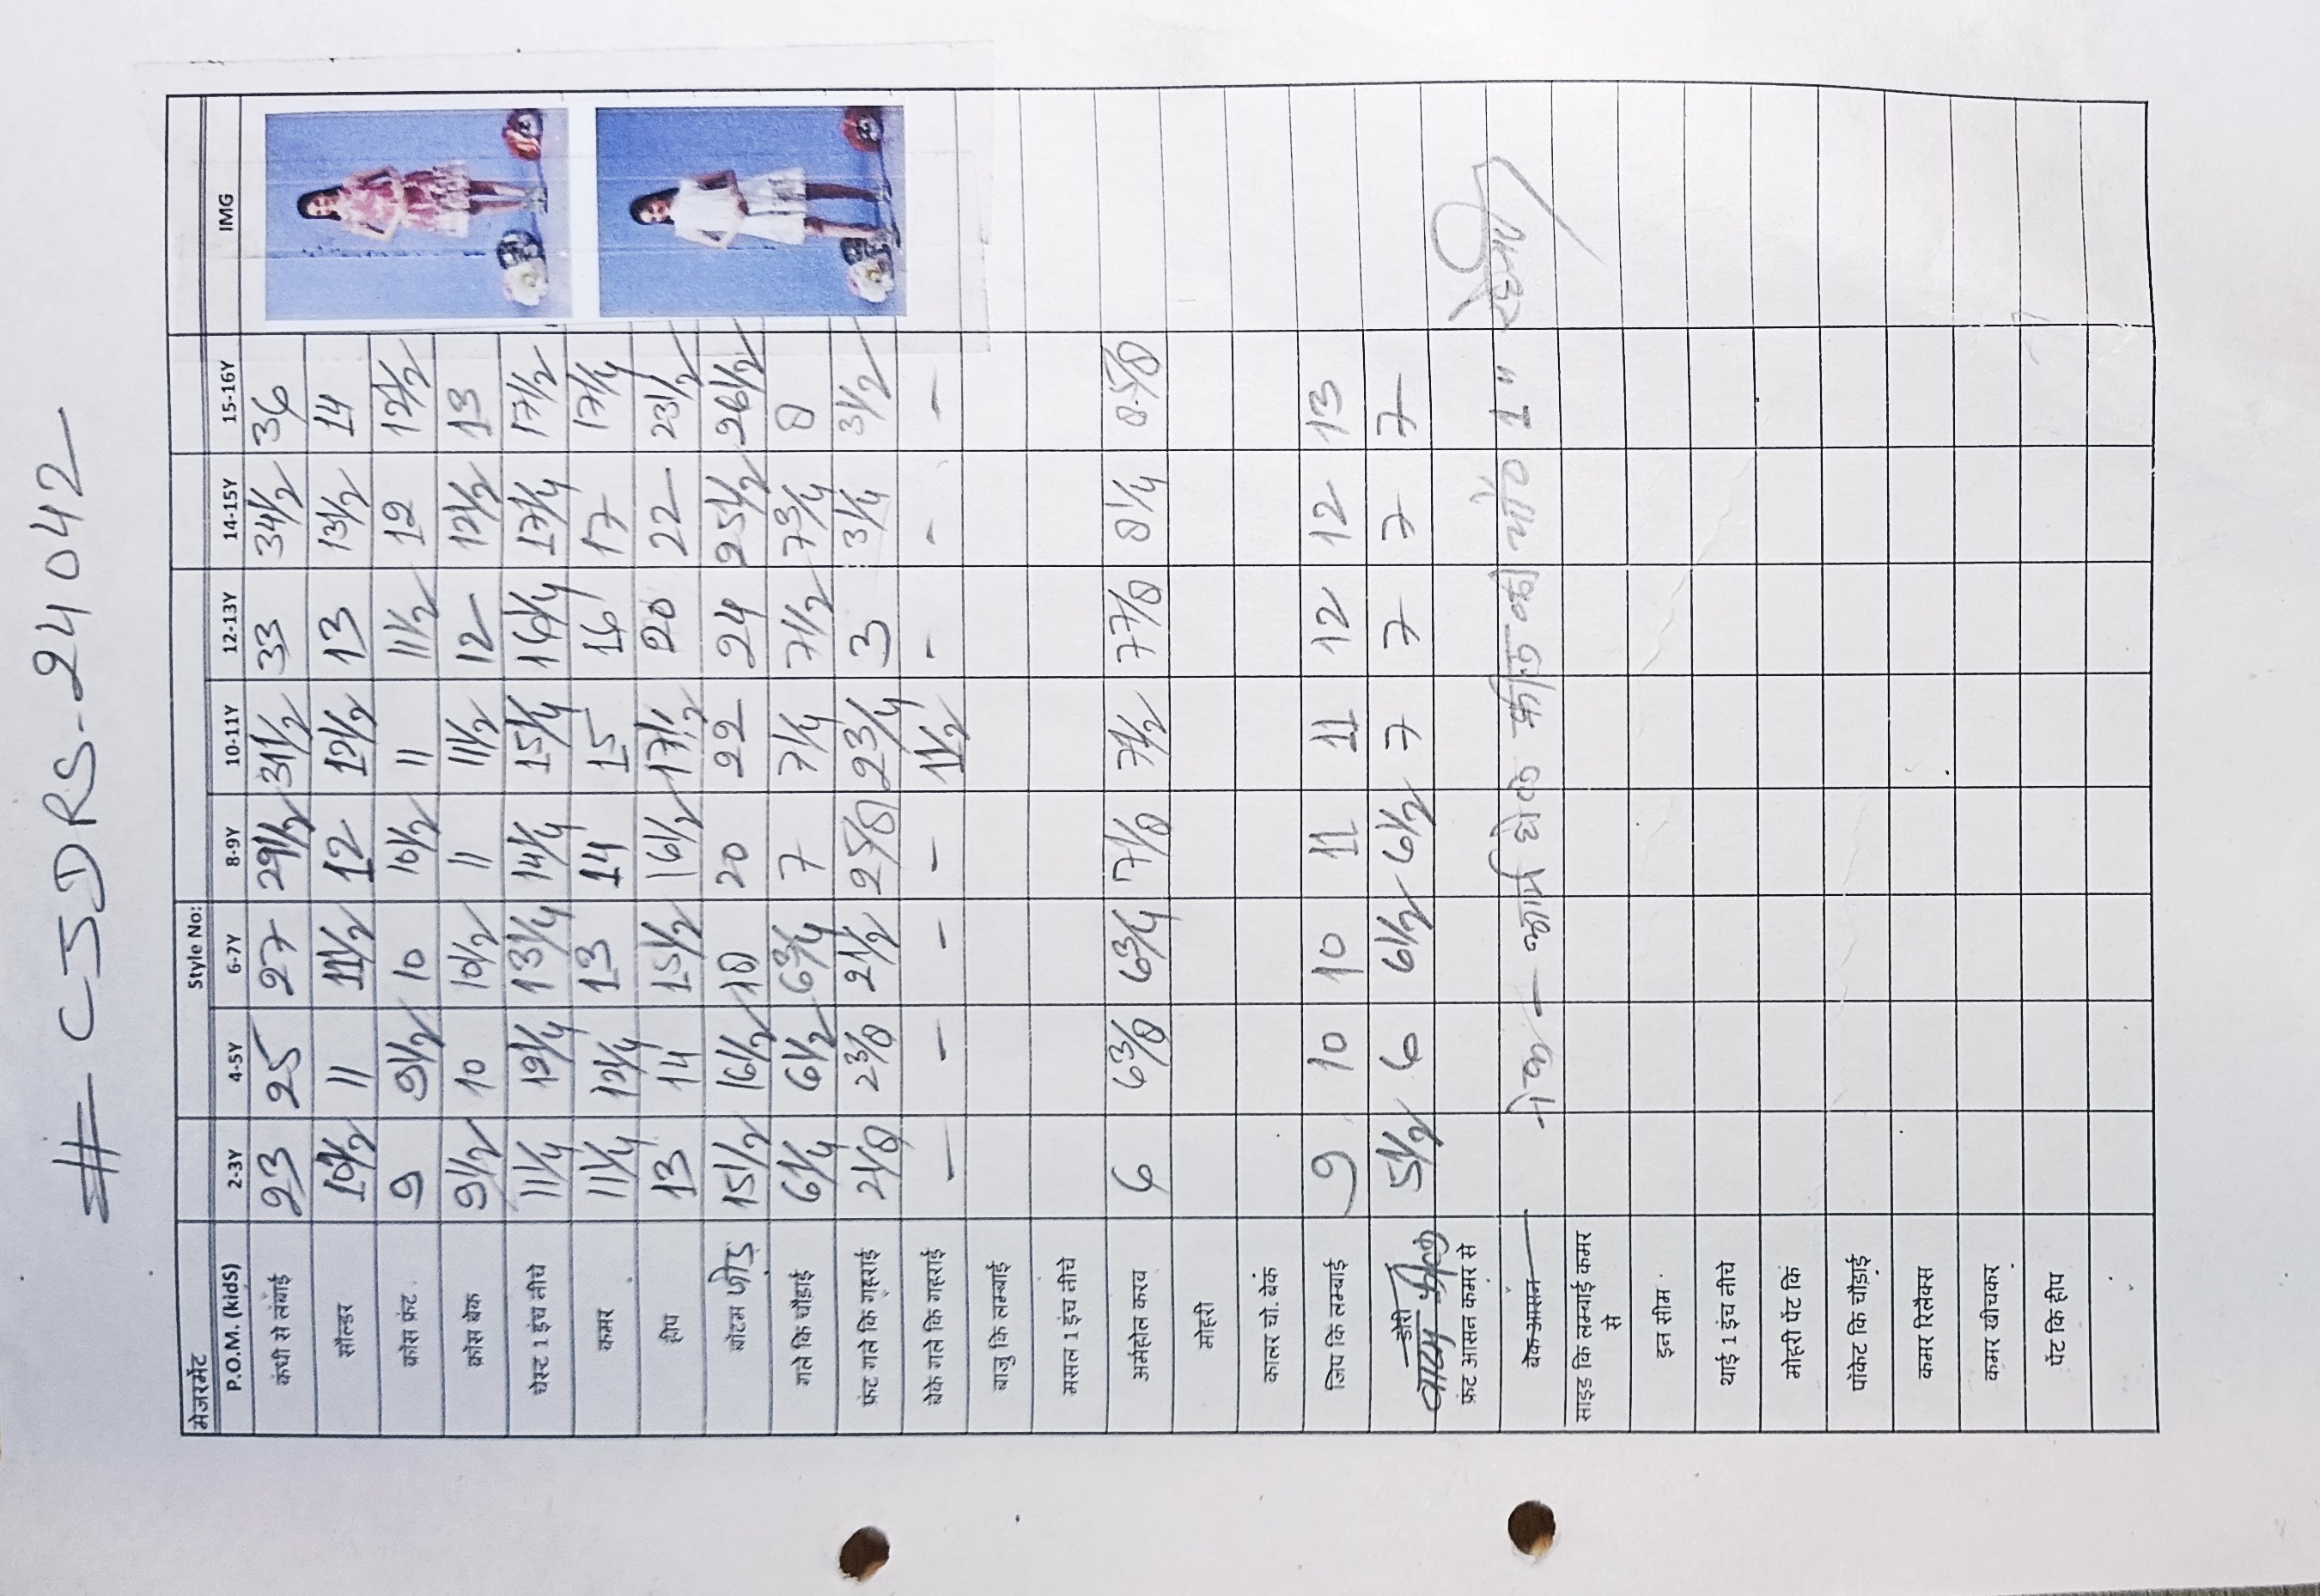 # CJDRS-24042
मेजरमेंट Style No:
P.O.M. (kidS) 2-3Y 4-5Y 6-7Y 8-9Y 10-11Y 12-13Y 14-15Y 15-16Y IMG
कंधी से लंबाई 23 25 27 29 1/2 31 1/2 33 34 1/2 36
सौल्डर 10 1/2 11 11 1/2 12 12 1/2 13 13 1/2 14
क्रोस फ्रंट 9 9 1/2 10 10 1/2 11 11 1/2 12 12 1/2
क्रोस बेक 9 1/2 10 10 1/2 11 11 1/2 12 12 1/2 13
चेस्ट 1 इंच नीचे 11 1/4 12 1/4 13 1/4 14 1/4 15 1/4 16 1/4 17 1/4 17 1/2
कमर 11 1/4 12 1/4 13 14 15 16 17 17 1/4
हीप 13 14 15 1/2 16 1/2 17 1/2 20 22 23 1/2
बोटम 15 1/2 16 1/2 18 20 22 24 25 1/2 26 1/2
गले कि चौडाई 6 1/4 6 1/2 6 3/4 7 7 1/4 7 1/2 7 3/4 8
फ्रंट गले कि गहराई 2 1/8 2 3/8 2 1/2 2 5/8 2 3/4 3 3 1/4 3 1/2
बेके गले कि गहराई - - - - 1 1/2 - - -
बाजु कि लम्बाई
मसल 1 इंच नीचे
अर्महोल करव 6 6 3/8 6 3/4 7 1/8 7 1/2 7 7/8 8 1/4 8-5/8
मोहरी
कालर चो. बेकं
जिप कि लम्बाई 9 10 10 11 11 12 12 13
डोरी 5 1/2 6 6 1/2 6 1/2 7 7 7 7
फ्रंट आसन कमर से
बेक आसन 1"
साइड कि लम्बाई कमर
से
इन सीम
थाई 1 इंच नीचे
मोहरी पेंट कि
पॉकेट कि चौड़ाई
कमर रिलैक्स
कमर खीचकर
पेंट कि हीप